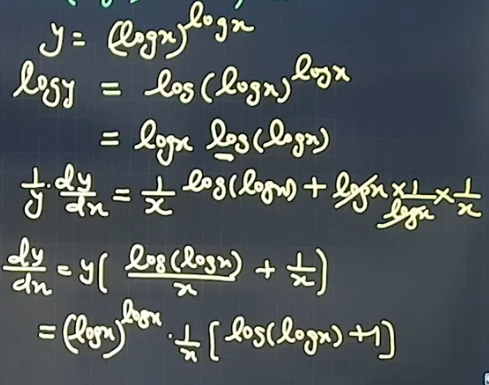 y = (logx)^logx
logy = log(logx)^logx
= logx log(logx)
1/y · dy/dx = 1/x log(logx) + logx × 1/logx × 1/x
dy/dx = y[ log(logx)/x + 1/x ]
= (logx)^logx · 1/x [ log(logx) + 1 ]